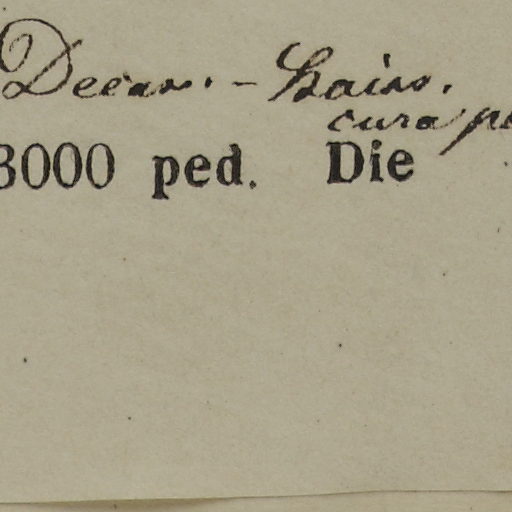 Decas. - Lais.
cura
3000 ped. Die